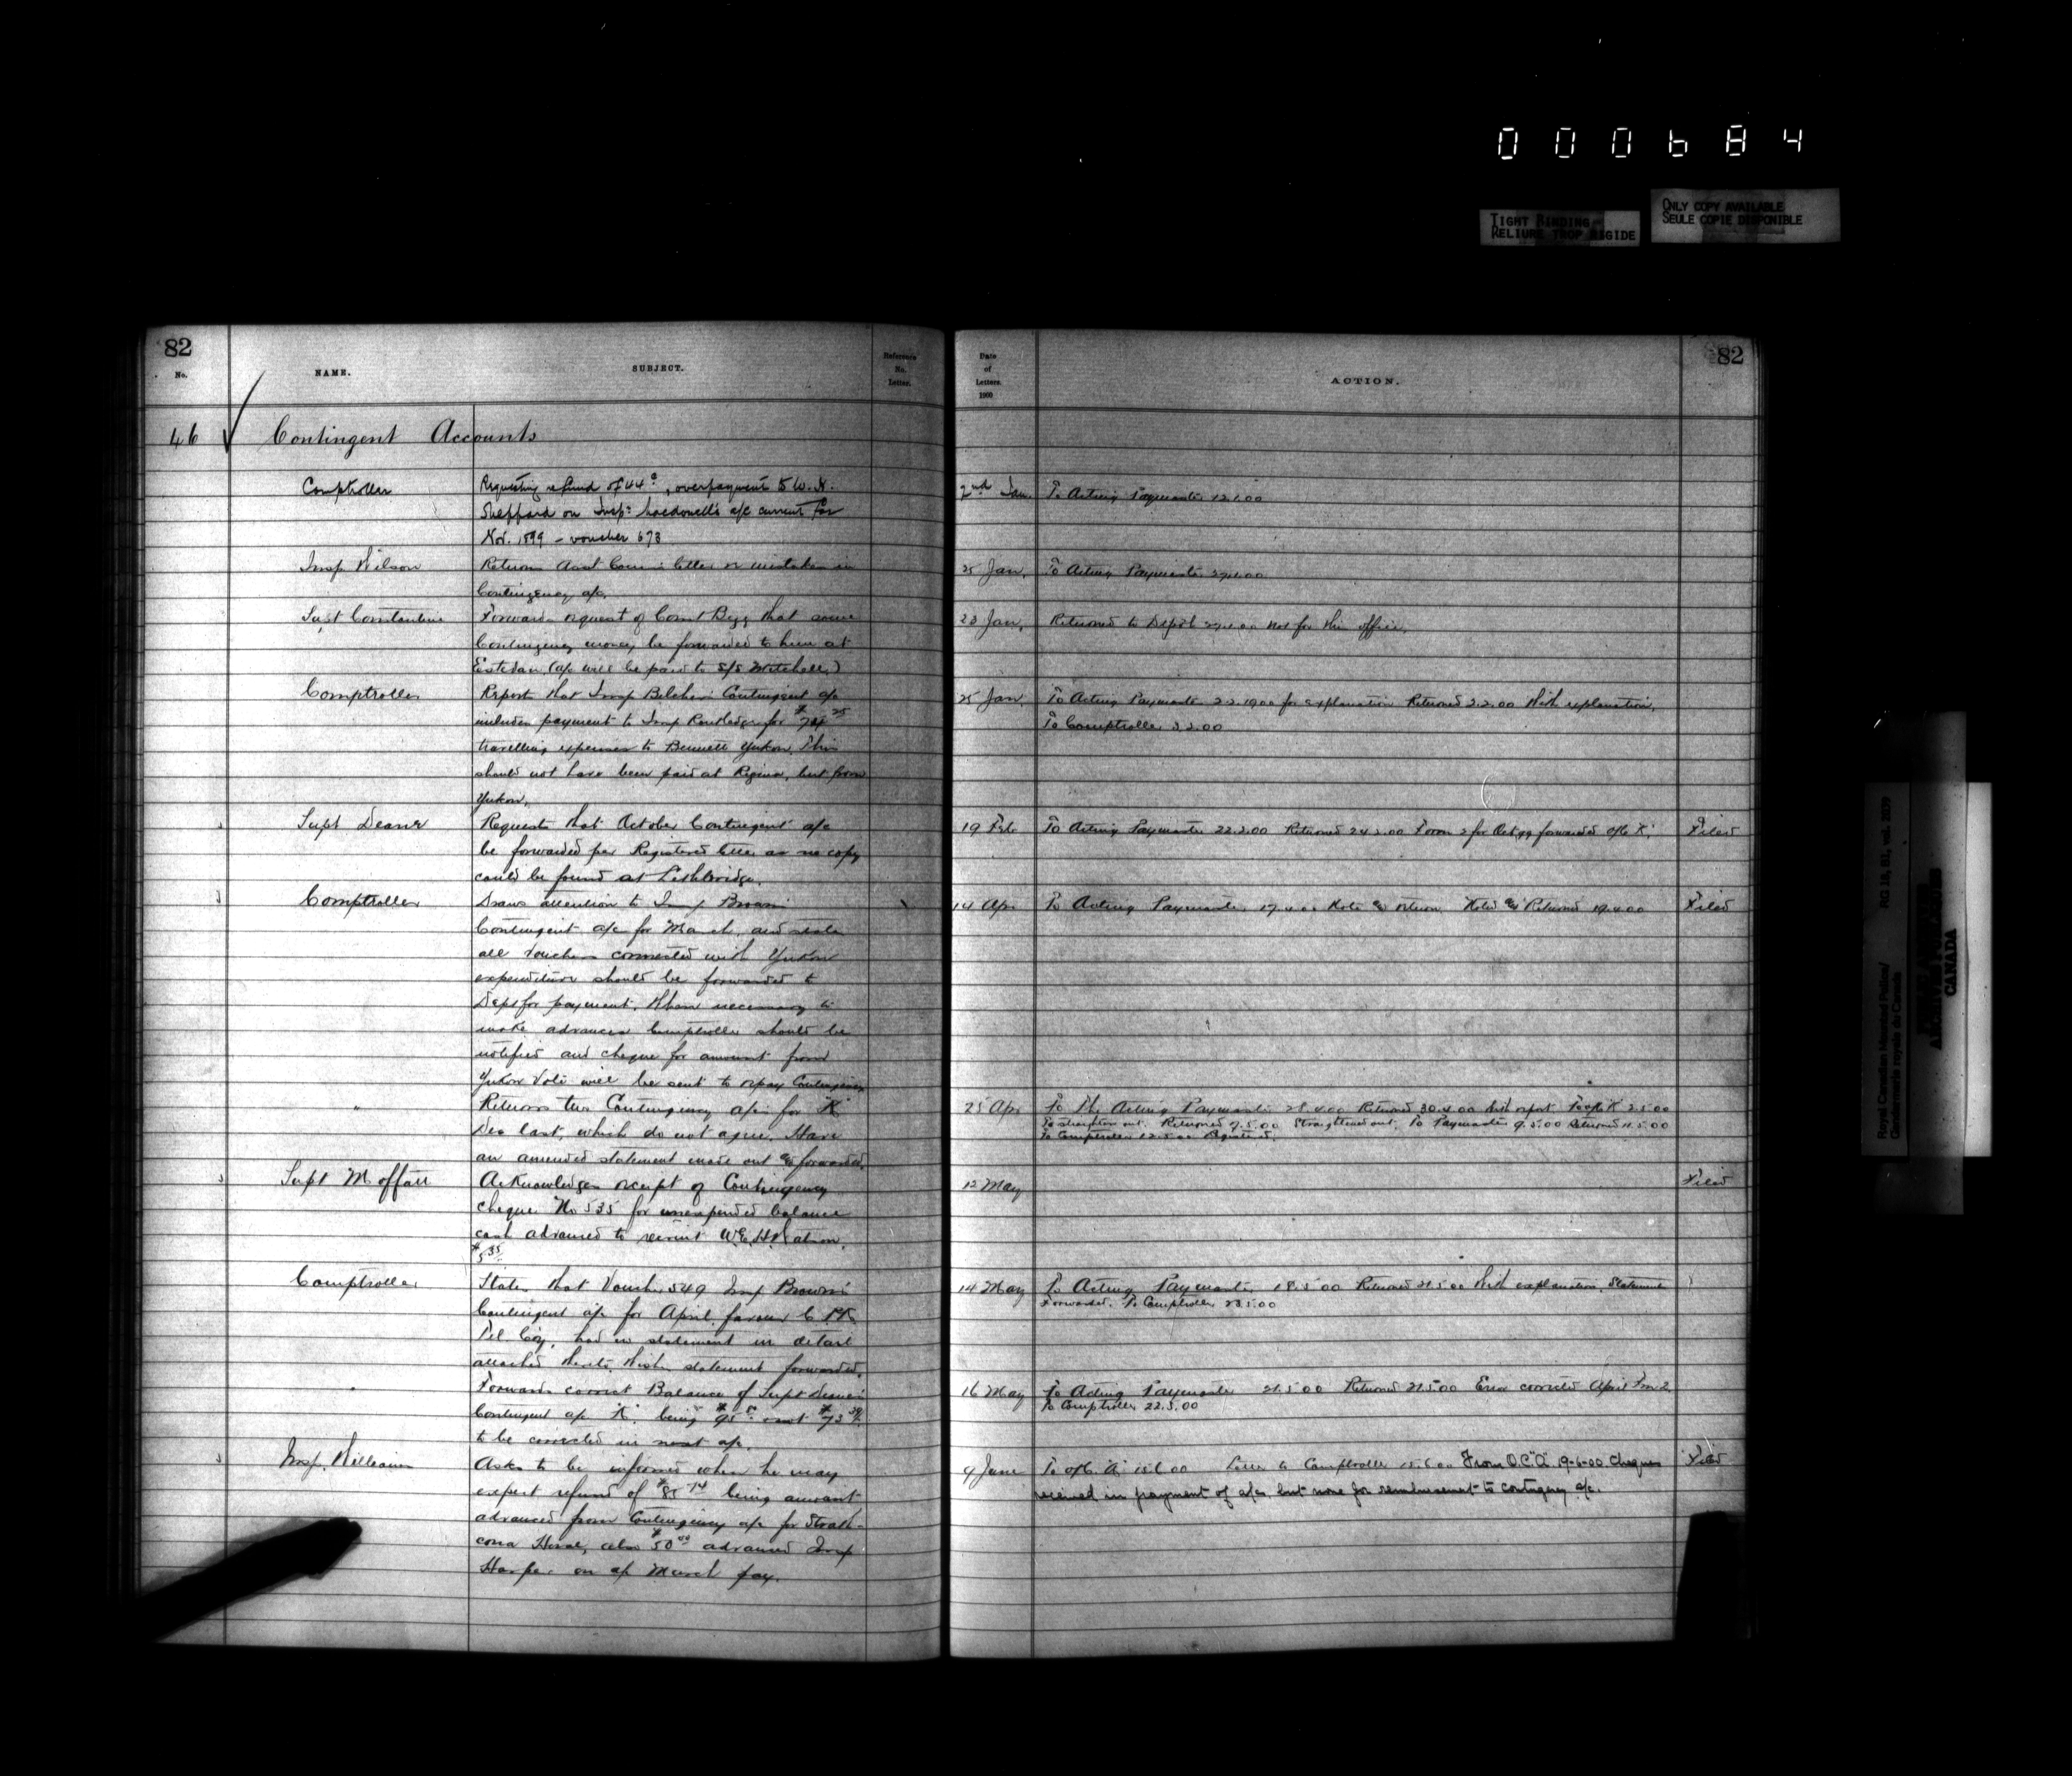 000684
TIGHT BINDING
RELIURE TROP RIGIDE
ONLY COPY AVAILABLE
SEULE COPIE DISPONIBLE
82
No.
NAME.
SUBJECT.
Reference
No.
Letter.
46 Contingent Accounts
Comptroller
Requesting refund of 44c, overpayment to W. H.
Sheppard on Insp: Macdonell's a/c current for
Nov. 1899 - voucher 673
Insp Wilson
Returns Asst Com's letter re mistakes in
Contingency a/c.
Supt Constantine
Forwards request of Const Begg that some
Contingency money be forwarded to him at
Estevan (a/c will be paid to S/S Mitchell)
Comptroller
Reports that Insp Belcher's Contingent a/c
includes payment to Insp Routledge for
travelling expenses to Bennett Yukon. This
should not have been paid at Regina, but from
Yukon.
Supt Deane
Requests that October Contingent a/c
be forwarded per Registered letter as no copy
could be found at Lethbridge.
Comptroller
Draws attention to Insp Brown's
Contingent a/c for March, and states
all vouchers connected with Yukon
expenditure should be forwarded to
Dept for payment. When necessary to
make advances Comptroller should be
notified and cheque for amount from
Yukon Vote will be sent to repay Contingency
"
Returns two Contingency a/cs for "K"
Dec last, which do not agree. Have
an amended statement made out & forwarded.
Supt Moffatt
Acknowledges receipt of Contingency
cheque No 535 for unexpended balance
cash advanced to recruit W.E.H. Watson.
$5.35
Comptroller
States that Voucher 549 Insp Brown's
Contingent a/c for April favour C.P.R.
Tel Coy, had no statement in detail
attached thereto. Wishes statement forwarded.
"
Forwards correct Balance of Supt Deane's
Contingent a/c "K" being not
to be corrected in next a/c.
Insp. Williams
Asks to be informed when he may
expect refund of being amount
advanced from Contingency a/c for Strath-
cona Horse, also $50.00 advanced Insp
Harper on a/c March pay.
Date
of
Letters.
1900
ACTION.
82
2nd Jan. To Acting Paymaster 12.1.00
25 Jan. To Acting Paymaster 29.1.00
23 Jan. Returned to Depot 29.1.00 not for this office.
25 Jan To Acting Paymaster 2.2.1900 for explanation Returned 2.2.00 With explanation.
To Comptroller 3.2.00
19 Feb To Acting Paymaster 22.2.00 Returned 24.2.00 Form 2 for Oct 99 forwarded o/c "K". Filed
14 Apr To Acting Paymaster 17.4.00 Note & return. Noted & Returned 19.4.00 Filed
25 Apr To The Acting Paymaster 28.4.00 Returned 30.4.00 With report To o/c "K" 2.5.00
To straighten out. Returned 7.5.00 Straightened out. To Paymaster 9.5.00 Returned 11.5.00
To Comptroller 12.5.00 Registered.
12 May Filed
14 May To Acting Paymaster 18.5.00 Returned 21.5.00 With explanation. Statement
Forwarded. To Comptroller 23.5.00
16 May To Acting Paymaster 21.5.00 Returned 21.5.00 Error corrected April Fm 2.
To Comptroller 22.5.00
9 June To o/c "A" 15.6.00 Letter to Comptroller 15.6.00 From O.C. "A" 19-6-00 Cheques Filed
received in payment of a/cs, but none for reimbursement to contingency a/c.
Royal Canadian Mounted Police/
Gendarmerie royale du Canada
RG 18, B1, vol.
ARCHIVES
CANADA